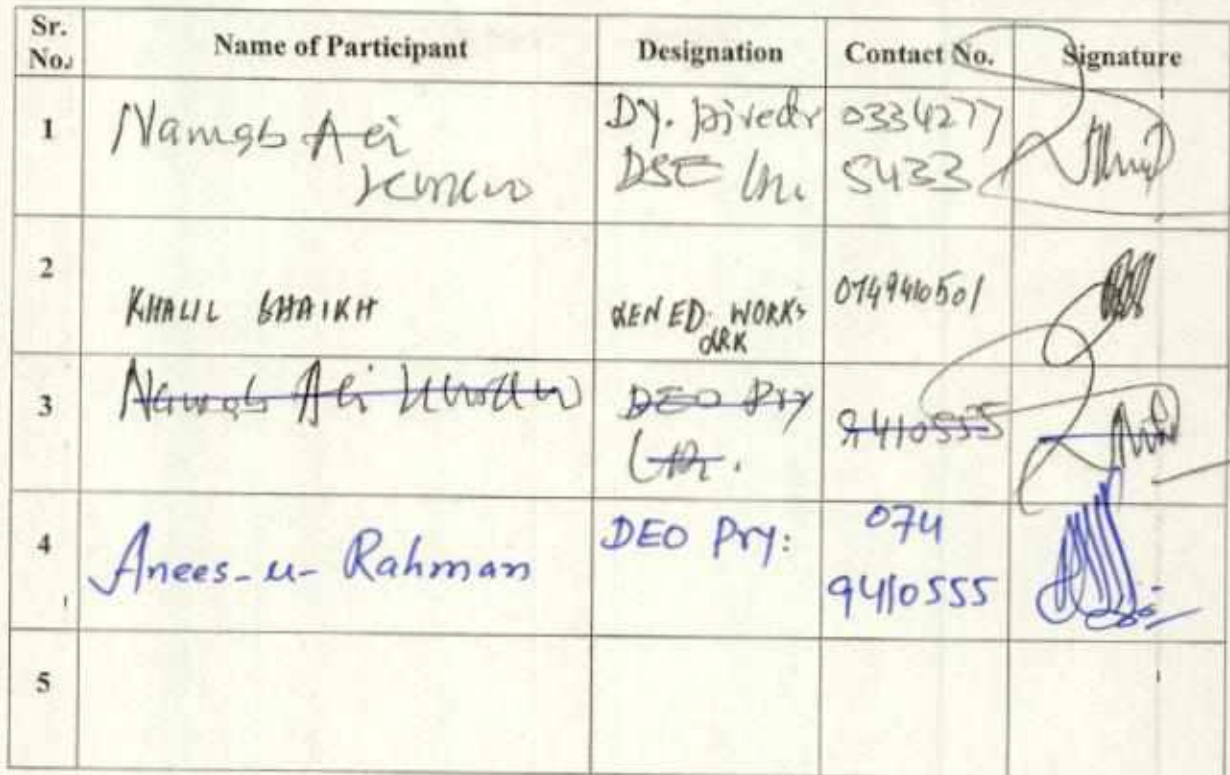 Sr. No. Name of Participant Designation Contact No. Signature
1 Nawab Ali Dy. Director 0334277
DSE 5433
2 KHALIL SHAIKH XEN ED. WORKS 0749410501
LRK
3 Nawab Ali DEO Pry 9410555
4 Anees-u-Rahman DEO Pry: 074
9410555
5